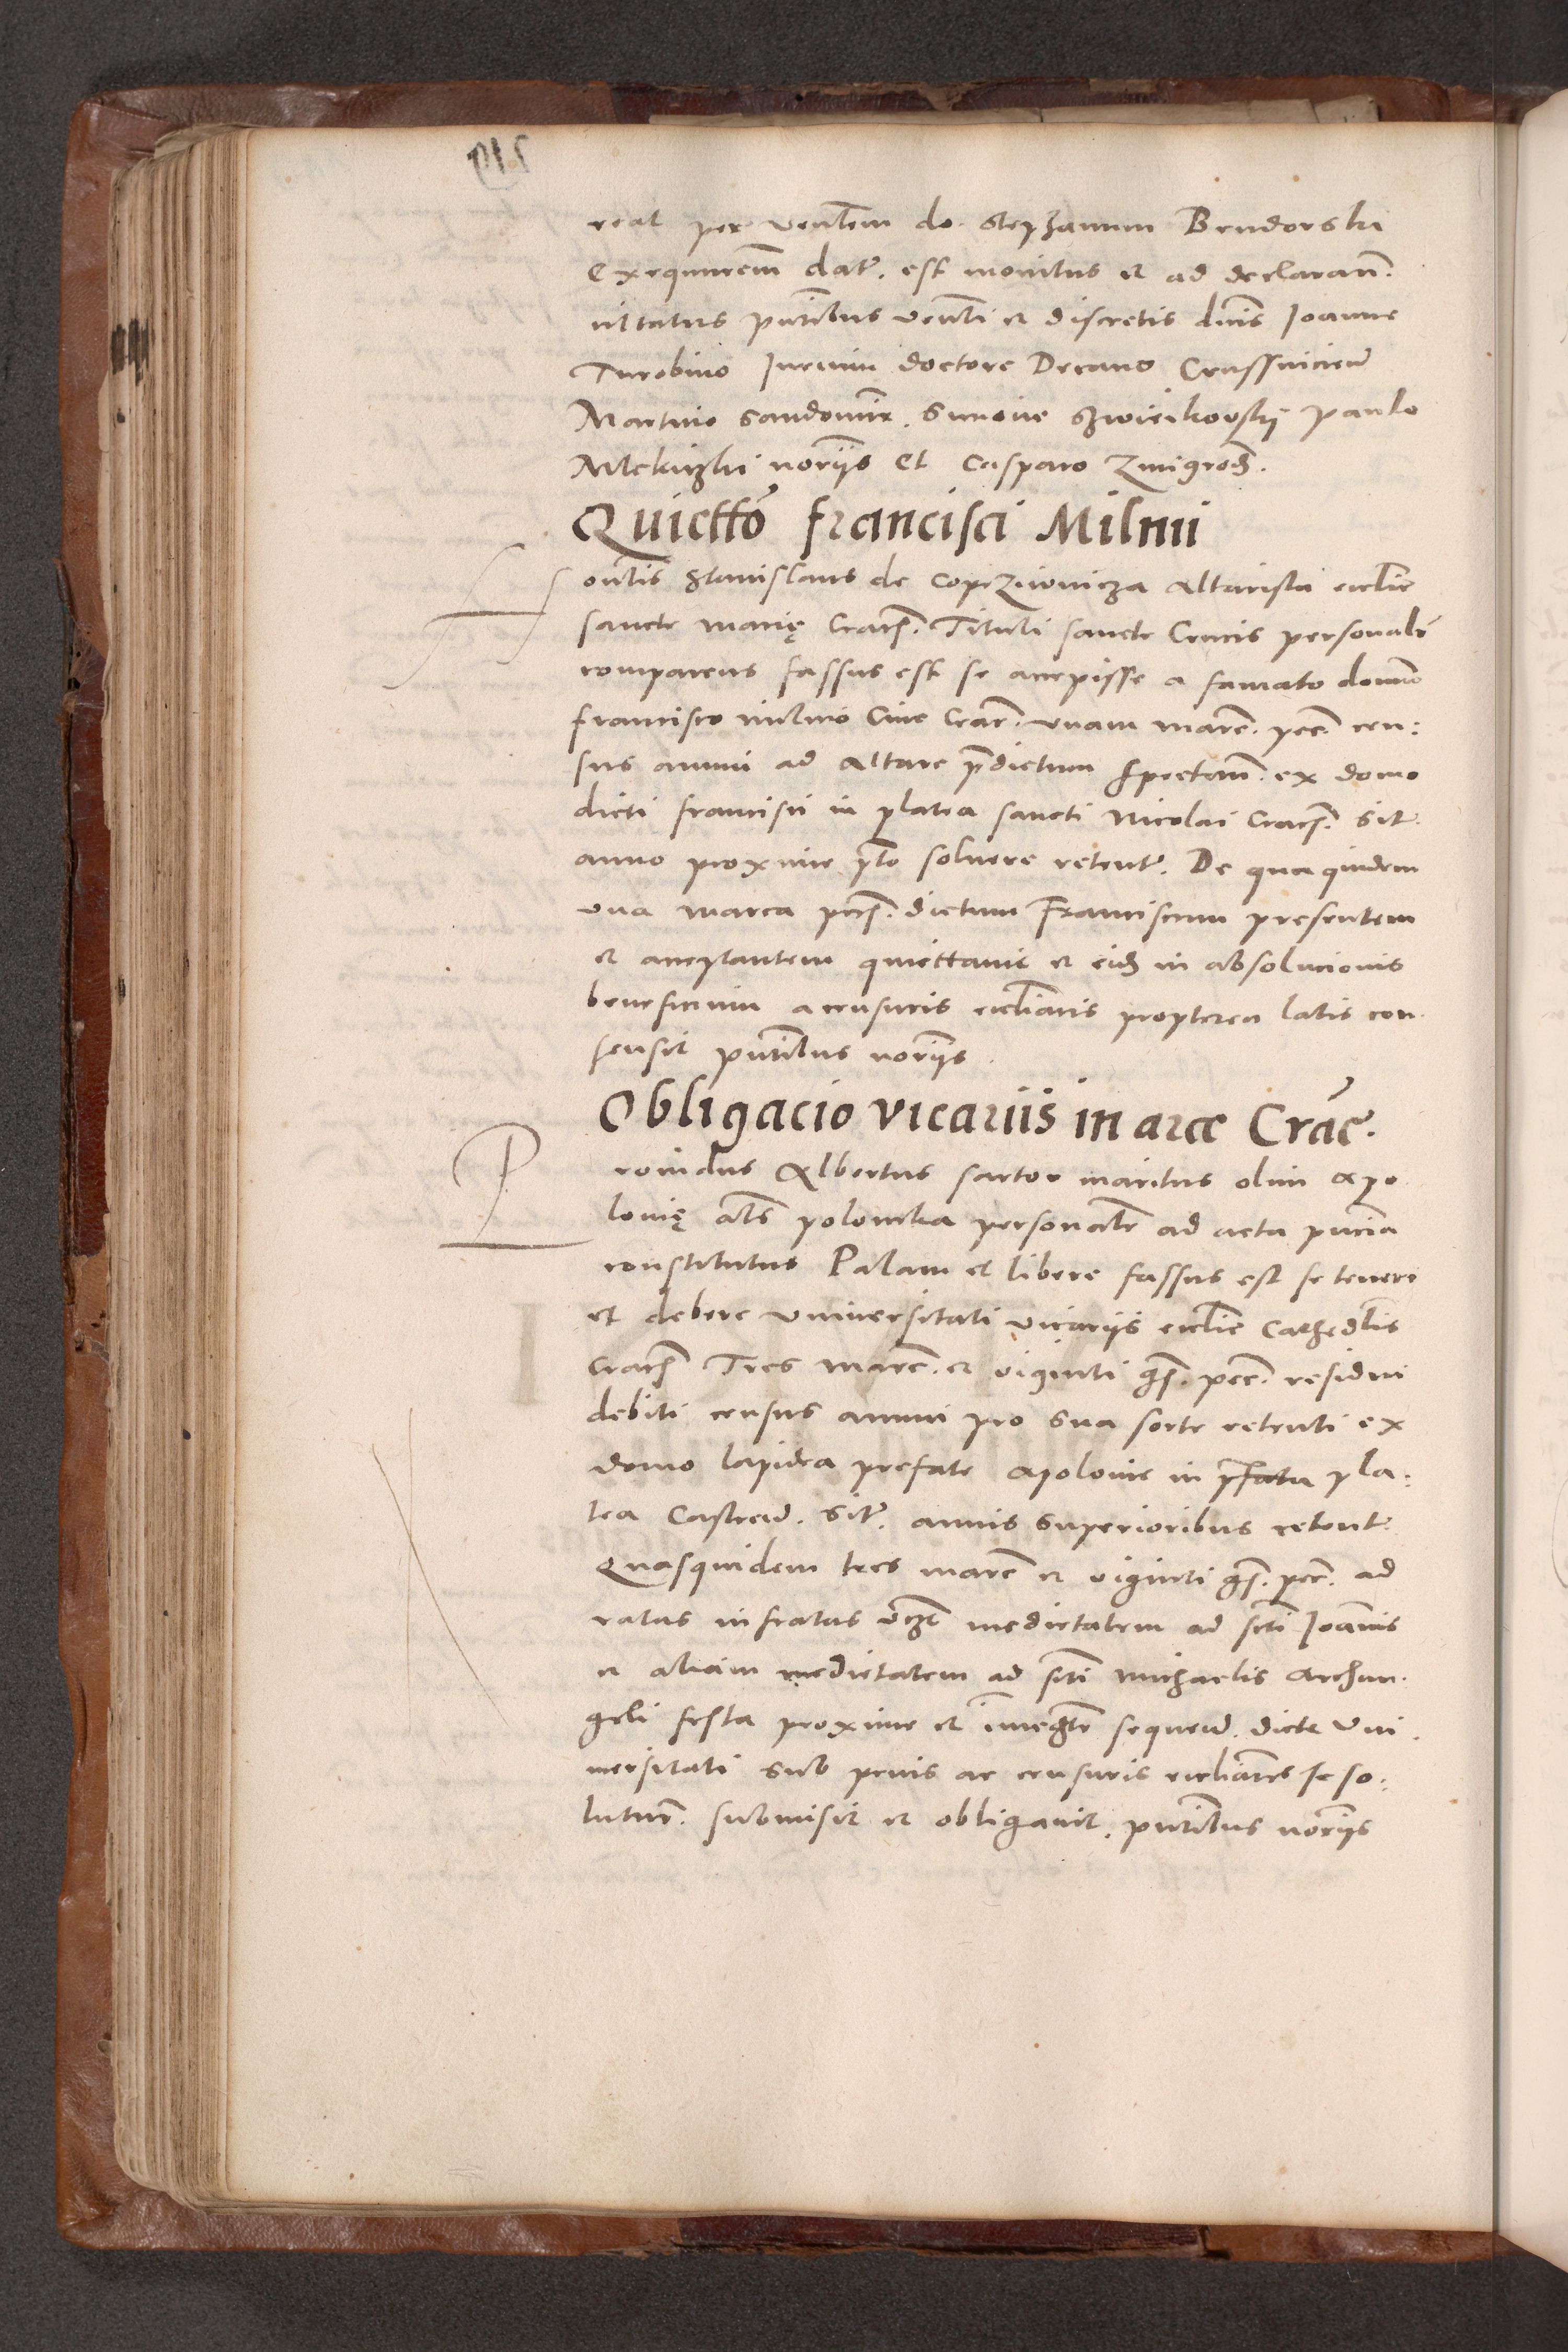 reat per Ven̄lem do. Stephanum Brudorski
Exequutorem̄ dat̃. est monitus et ad declaran̄.
citatus pn̄tibus ven̄li et discretis dn̄is Joanne
Turobino Jurium doctore Decano Crussvicien̄
Martino Sandomir̃. Simone paulo
norijs Et Casparo Zmigrod̃.
Quietťo francisci Milnii
Honłis Stanislaus de Coprzivnicza Altarista eccłie
sancte marię Crac̃. Tituli sancte Crucis personalr̃
comparens fassus est se accepisse a famato domino
francisco milnio Cive Crac̃. unam marc̃. pec̃. cen:
sus annui ad altare p̄dictum spectan̄. ex domo
dicti francisci in platea sancti Nicolai Crac̃. sit̃.
anno proxime pr̄to solvere retent̃. De qua quidem
una marca pec̃. dictum Franciscum presentem
et acceptantem quiettavit et eid̃ in absolucionis
beneficium a censuris eccłiasticis propterea latis con
sensit pn̄tibus norijs
Obligacio vicariis in arce Crac̄.
Providus Albertus sartor maritus olim Apo
lonię al̄s polonka personalr̃ ad acta pn̄cia
constitutus Palam et libere fassus est se teneri
et debere Universitati vicarijs eccłie Cathedłis
Crac̃ Tres marc̃. et viginti gr̃. pec̃. residui
debiti census annui pro sua sorte retenti ex
domo lapidea prefate Apolonie in p̄fata pla:
tea Castren̄. Sit̃. annis superioribus retent̃
Quasquidem tres marc̃ et viginti gr̃. pec̃. ad
ratas infratas vcz̃ medietatem ad scti Joannis
et aliam medietatem ad scti Michaelis Archan
geli festa proxime et sequen̄. dicte Uni
versitati sub penis ac censuris eccłiasticis se so:
lutur̃. submisit et obligavit. pn̄tibus norijs